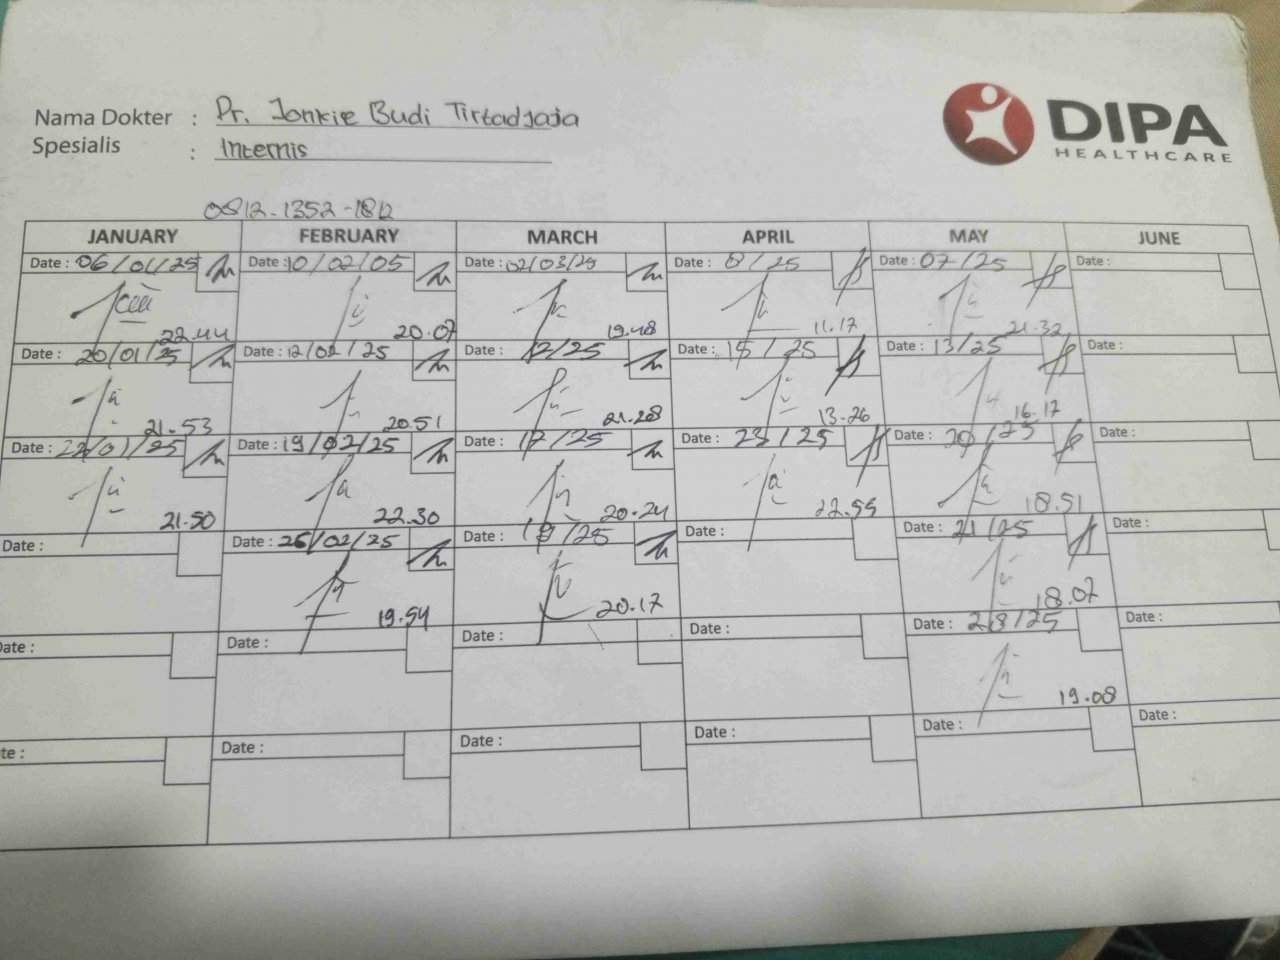 Nama Dokter : Dr. Jonkie Budi Tirtadjaja
DIPA
HEALTHCARE
Spesialis : Internis
0812-1352-1812
JANUARY FEBRUARY MARCH APRIL MAY JUNE
Date : 06/01/25 Date : 10/02/05 Date : 02/03/25 Date : 8/25 Date : 07/25 Date :
22.44 20.07 19.48 11.17 21.32
Date : 20/01/25 Date : 12/02/25 Date : 12/25 Date : 15/25 Date : 13/25 Date :
21.53 20.51 21.28 13.26 16.17
Date : 22/01/25 Date : 19/02/25 Date : 17/25 Date : 23/25 Date : 20/25 Date :
21.50 22.30 20.24 22.55 18.51
Date : Date : 26/02/25 Date : 19/25 Date : Date : 21/25 Date :
19.54 20.17 18.07
Date : Date : Date : Date : Date : 28/25 Date :
19.08
te : Date : Date : Date : Date : Date :